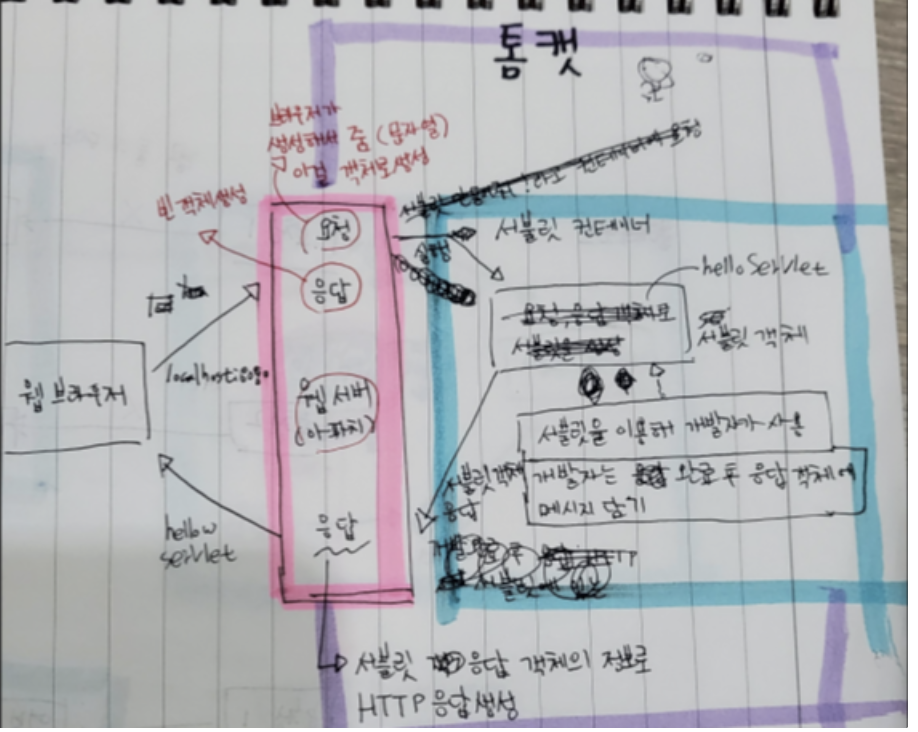 톰캣
브라우저가
생성해서 줌 (문자열)
이걸 객체로 생성
빈 객체 생성
요청
응답
서블릿 컨테이너
실행
helloServlet
서블릿 객체
웹 브라우저
localhost:8080
웹 서버
(아파치)
서블릿을 이용해 개발자가 사용
개발자는 완료 후 응답 객체에
메시지 담기
서블릿 객체
응답
hellow
servlet
응답
서블릿 응답 객체의 정보로
HTTP 응답 생성